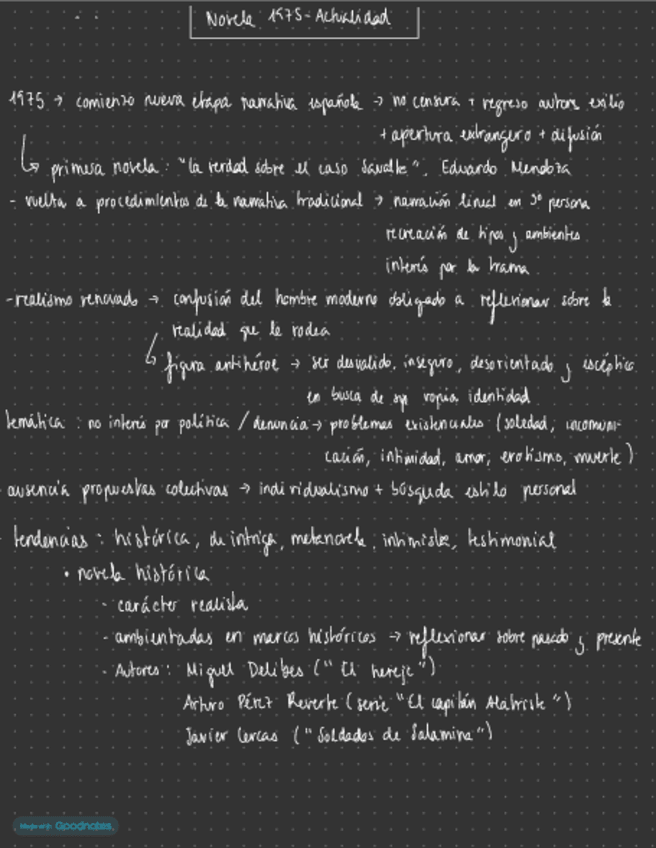 Novela 1975-Actualidad
1975 → comienzo nueva etapa narrativa española → no censura + regreso autores exilio
+ apertura extrangero + difusión
↳ primera novela: "la verdad sobre el caso Savolta", Eduardo Mendoza
- vuelta a procedimientos de la narrativa tradicional → narración lineal en 3ª persona
recreación de tipos y ambientes
interés por la trama
- realismo renovado → confusión del hombre moderno obligado a reflexionar sobre la
realidad que le rodea
↳ figura antihéroe → ser desvalido, inseguro, desorientado y escéptico
en busca de su identidad
temática: no interés por política / denuncia → problemas existenciales (soledad, incomuni-
cación, intimidad, amor, erotismo, muerte)
ausencia propuestas colectivas → individualismo + búsqueda estilo personal
- tendencias: histórica, de intriga, metanovela, intimista, testimonial
• novela histórica
- carácter realista
- ambientadas en marcos históricos → reflexionar sobre pasado y presente
- Autores: Miguel Delibes ("El hereje")
Arturo Pérez Reverte (serie "El capitán Alatriste")
Javier Cercas ("Soldados de Salamina")
Made with Goodnotes